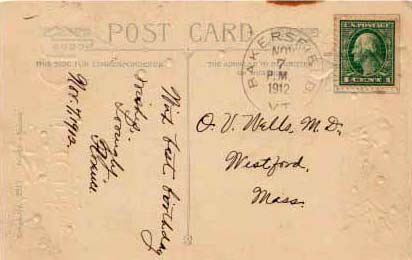 POST CARD
THIS SIDE FOR CORRESPONDENCE
THE ADDRESS TO BE WRITTEN
ON THIS SIDE
BAKERSFIELD
NOV
7
P.M.
1912
VT.
U.S. POSTAGE
1 CENT 1
O. V. Wells, M.D.
Westford,
Mass.
With best birthday
wishes.
Lovingly
Nov. 7, 1912.